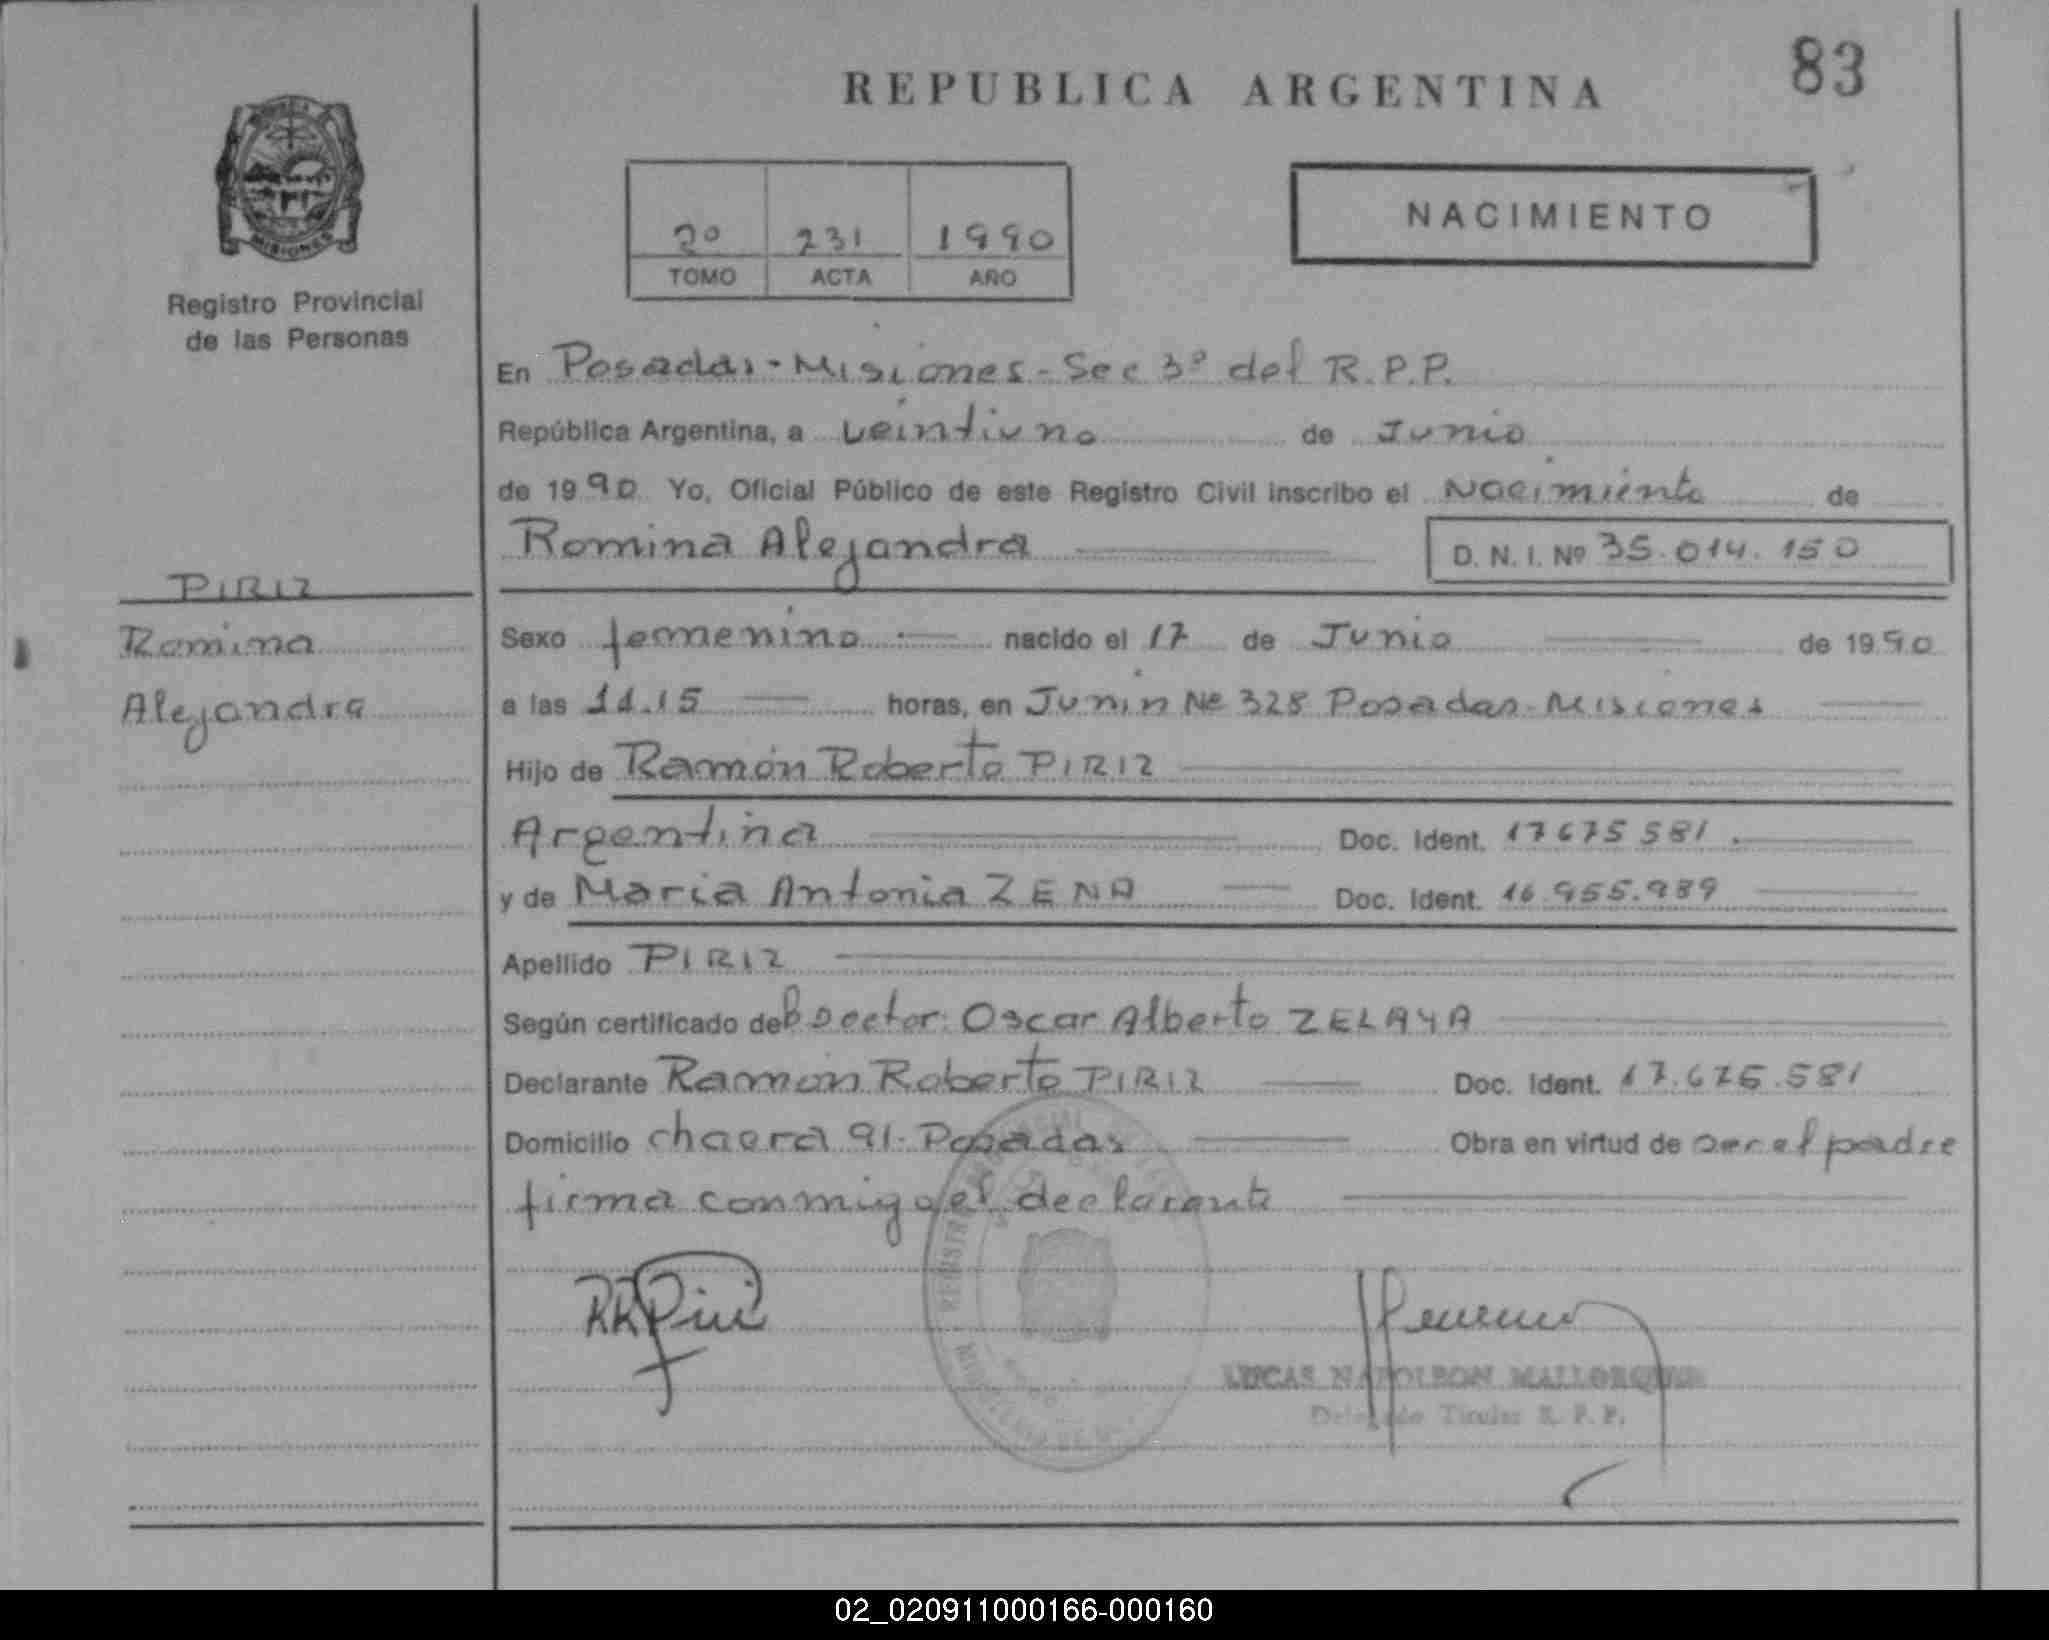 83
REPUBLICA ARGENTINA
MISIONES
Registro Provincial
de las Personas
2º 231 1990
TOMO ACTA AÑO
NACIMIENTO
En Posadas-Misiones-Sec 3º del R.P.P.
República Argentina, a veintiuno de Junio
de 1990 Yo, Oficial Público de este Registro Civil inscribo el Nacimiento de
Romina Alejandra D. N. I. Nº 35.014.150
PIRIZ
Romina
Alejandra
Sexo femenino nacido el 17 de Junio de 1990
a las 11.15 horas, en Junin Nº 328 Posadas-Misiones
Hijo de Ramón Roberto PIRIZ
Argentina Doc. Ident. 17675581
y de Maria Antonia ZENA Doc. Ident. 16.955.989
Apellido PIRIZ
Según certificado del Doctor: Oscar Alberto ZELAYA
Declarante Ramón Roberto PIRIZ Doc. Ident. 17.675.581
Domicilio chacra 91-Posadas Obra en virtud de ser el padre
firma conmigo el declarante
LUCAS NAPOLEON
Delegado Titular R. P. P.
02_020911000166-000160